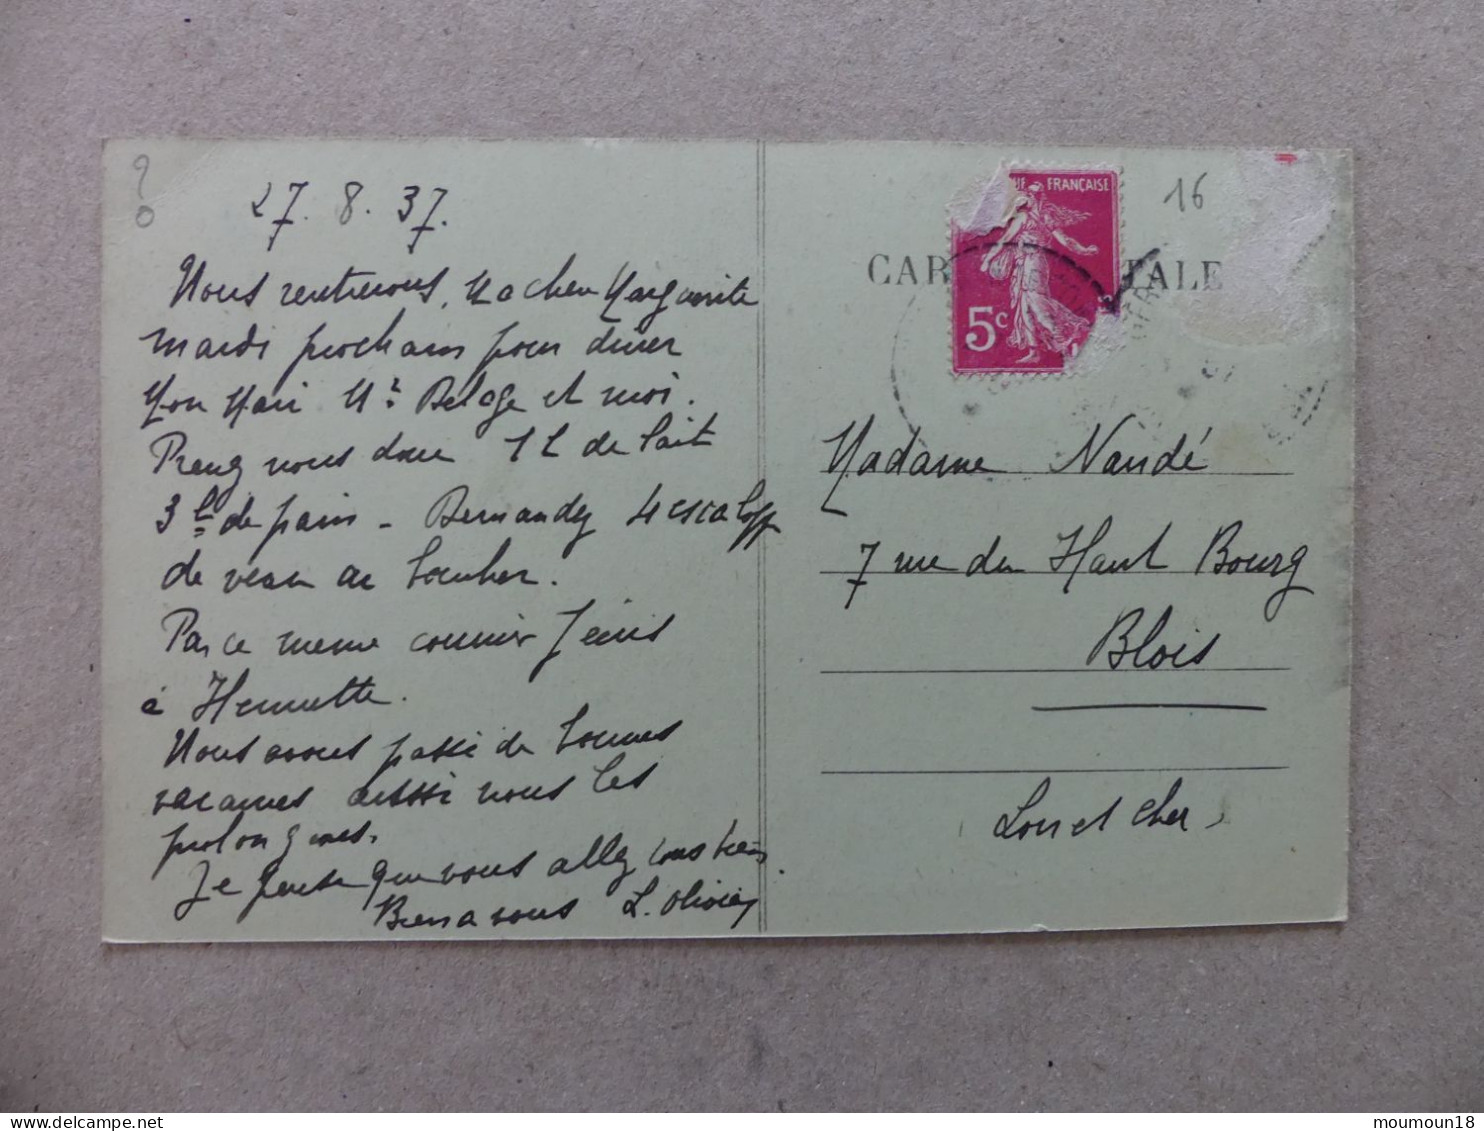 27.8.37.
Nous rentrerons, Ma chère Marguerite
mardi prochain pour diner
Mon Mari Mr Deloge et moi.
Prenez nous donc 1 L de lait
3 l de pain - Demandez 4 escalopp
de veau au boucher.
Par ce meme courrier j'écris
à Henriette.
Nous avons passé de bonnes
vacances aussi nous les
prolongeons.
Je pense que vous allez tous bien.
Bien a vous L. Olivier
?
16
UE FRANÇAISE
5c
CAR TALE
Madame Naudé
7 rue du Haut Bourg
Blois
Loir et Cher
moumoun18